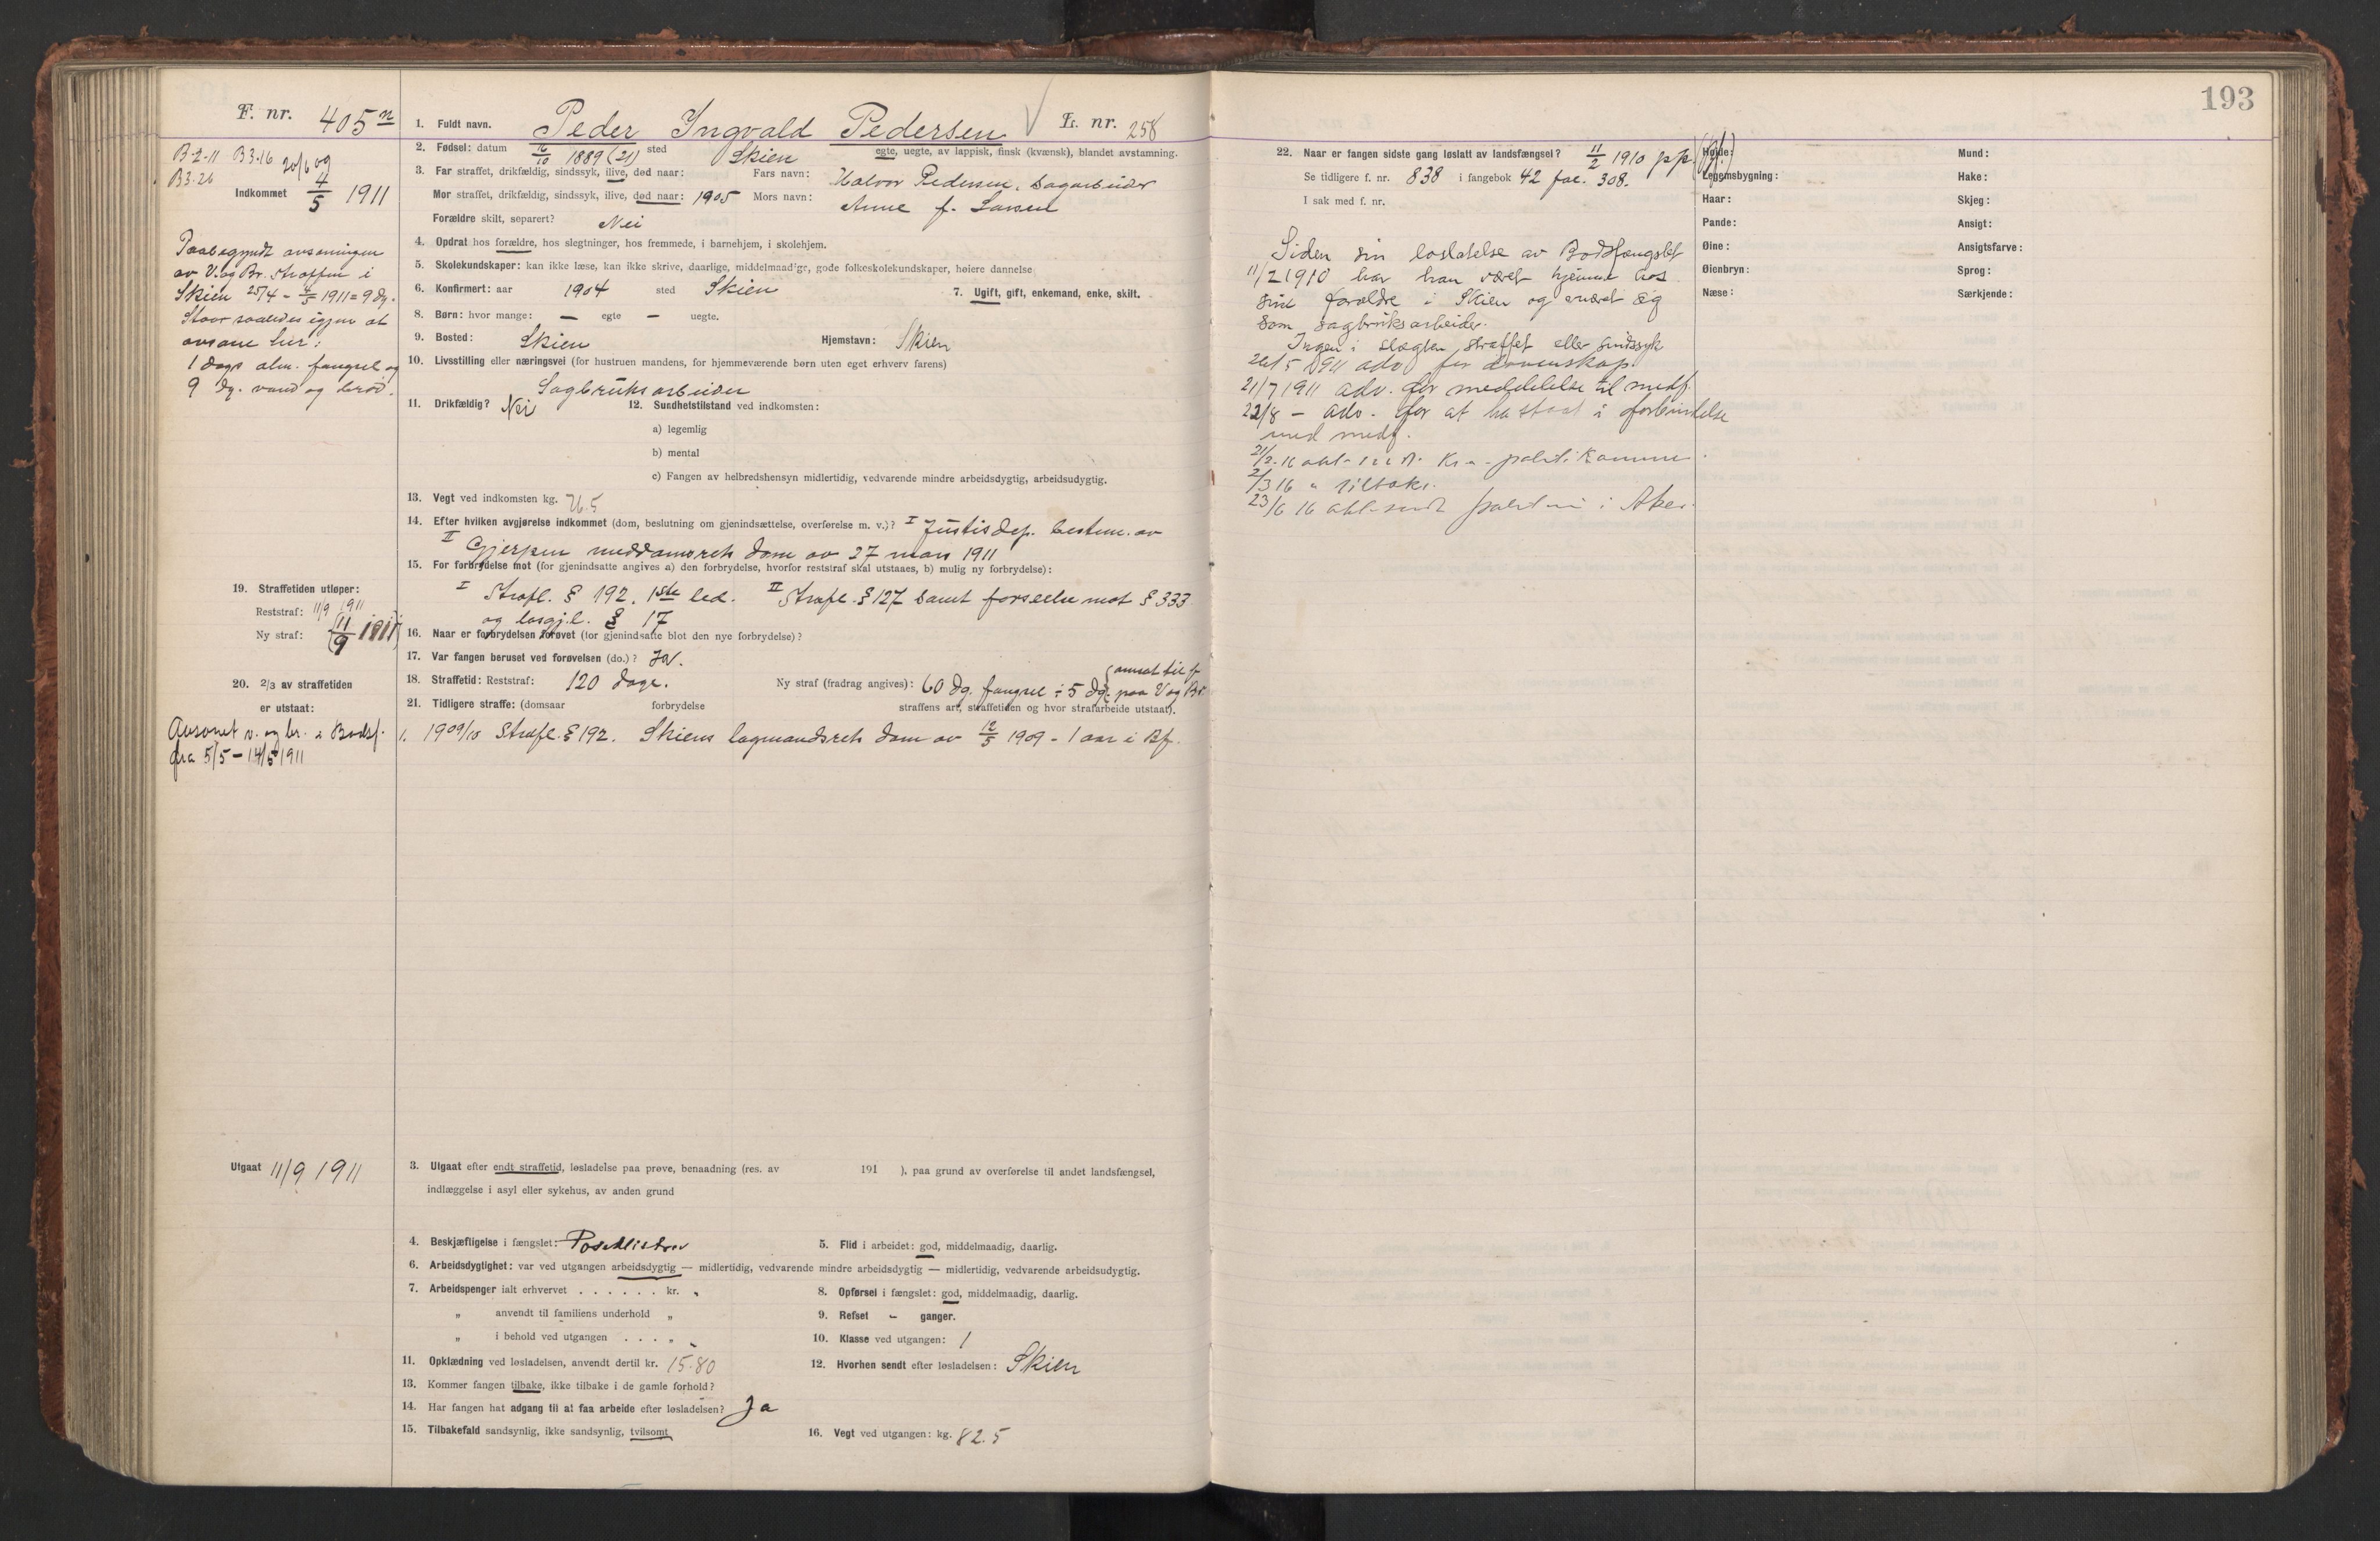 193
F. nr. 405 n
1. Fuldt navn. Peder Ingvald Pedersen L. nr. 258
B-2-11 B3.16 20/6 09
B3.26
Indkommet 4/5 1911
2. Fødsel: datum 16/10 1889 (21) sted Skien egte, uegte, av lappisk, finsk (kvænsk), blandet avstamning.
3. Far straffet, drikfældig, sindssyk, ilive, død naar: Fars navn: Halvor Pedersen, Sagarbeider
Mor straffet, drikfældig, sindssyk, ilive, død naar: 1905 Mors navn: Anne f. Larsen
Forældre skilt, separert? Nei
4. Opdrat hos forældre, hos slegtninger, hos fremmede, i barnehjem, i skolehjem.
5. Skolekundskaper: kan ikke læse, kan ikke skrive, daarlige, middelmaadige, gode folkeskolekundskaper, høiere dannelse
6. Konfirmert: aar 1904 sted Skien 7. Ugift, gift, enkemand, enke, skilt.
8. Børn: hvor mange: — egte — uegte.
9. Bosted: Skien Hjemstavn: Skien
10. Livsstilling eller næringsvei (for hustruen mandens, for hjemmeværende børn uten eget erhverv farens)
Sagbruksarbeider
11. Drikfældig? Nei 12. Sundhetstilstand ved indkomsten:
a) legemlig
b) mental
c) Fangen av helbredshensyn midlertidig, vedvarende mindre arbeidsdygtig, arbeidsudygtig.
Paabegyndt avsoningen
av V. og Br. straffen i
Skien 25/4 - 4/5 1911 = 9 dg.
Staar saaledes igjen at
avsone her:
1 dags alm. fængsel og
9 dg. vand og brød.
13. Vegt ved indkomsten kg. 76.5
14. Efter hvilken avgjørelse indkommet (dom, beslutning om gjenindsættelse, overførelse m. v.)? I Justisdep. bestem. av
II Gjerpen meddomsrets dom av 27 mars 1911
15. For forbrydelse mot (for gjenindsatte angives a) den forbrydelse, hvorfor reststraf skal utstaaes, b) mulig ny forbrydelse):
I Strafl. § 192. 1ste led. II Strafl. § 127 samt forseelse mot § 333
og løsgj.l. § 17
19. Straffetiden utløper:
Reststraf: 11/9 1911
Ny straf: (11/9 1911)
16. Naar er forbrydelsen forøvet (for gjenindsatte blot den nye forbrydelse)?
17. Var fangen beruset ved forøvelsen (do.)? Ja.
18. Straffetid: Reststraf: 120 dage. Ny straf (fradrag angives): 60 dg. fængsel ÷ 5 dg. (omsat til f. paa V og Br.
20. 2/3 av straffetiden
er utstaat:
21. Tidligere straffe: (domsaar forbrydelse straffens art, straffetiden og hvor strafarbeide utstaat).
Avsonet v. og br. i Bodsf.
fra 5/5 - 14/5 1911
1. 1909/10 Strafl. § 192. Skiens lagmandsrets dom av 12/5 1909 - 1 aar i Bf.
Utgaat 11/9 1911
3. Utgaat efter endt straffetid, løsladelse paa prøve, benaadning (res. av 191 ), paa grund av overførelse til andet landsfængsel,
indlæggelse i asyl eller sykehus, av anden grund
4. Beskjæftigelse i fængslet: 5. Flid i arbeidet: god, middelmaadig, daarlig.
6. Arbeidsdygtighet: var ved utgangen arbeidsdygtig — midlertidig, vedvarende mindre arbeidsdygtig — midlertidig, vedvarende arbeidsudygtig.
7. Arbeidspenger ialt erhvervet . . . . . . kr. „ 8. Opførsel i fængslet: god, middelmaadig, daarlig.
„ anvendt til familiens underhold „ 9. Refset - ganger.
„ i behold ved utgangen . . . „ 10. Klasse ved utgangen: 1
11. Opklædning ved løsladelsen, anvendt dertil kr. 15.80 12. Hvorhen sendt efter løsladelsen: Skien
13. Kommer fangen tilbake, ikke tilbake i de gamle forhold?
14. Har fangen hat adgang til at faa arbeide efter løsladelsen? Ja
15. Tilbakefald sandsynlig, ikke sandsynlig, tvilsomt 16. Vegt ved utgangen: kg. 82.5
22. Naar er fangen sidste gang løslatt av landsfængsel? 11/2 1910 pp. (Bf.)
Se tidligere f. nr. 838 i fangebok 42 fol. 308.
I sak med f. nr.
Siden sin løsladelse av Bodsfængslet
11/2 1910 har han været hjemme hos
sine forældre i Skien og ernæret sig
som sagbruksarbeider.
Ingen i slægten straffet eller sindssyk
26/5 1911 adv for dovenskap.
21/7 1911 adv. for meddelelse til medf.
22/8 - adv. for at ha staat i forbindelse
med medf.
21/2. 16 akt-sendt Kr.a. politikammer.
2/3 16 " tilbake.
23/6 16 akt-sendt politim i Aker.
Høide:
Legemsbygning:
Haar:
Pande:
Øine:
Øienbryn:
Næse:
Mund:
Hake:
Skjeg:
Ansigt:
Ansigtsfarve:
Sprog:
Særkjende: